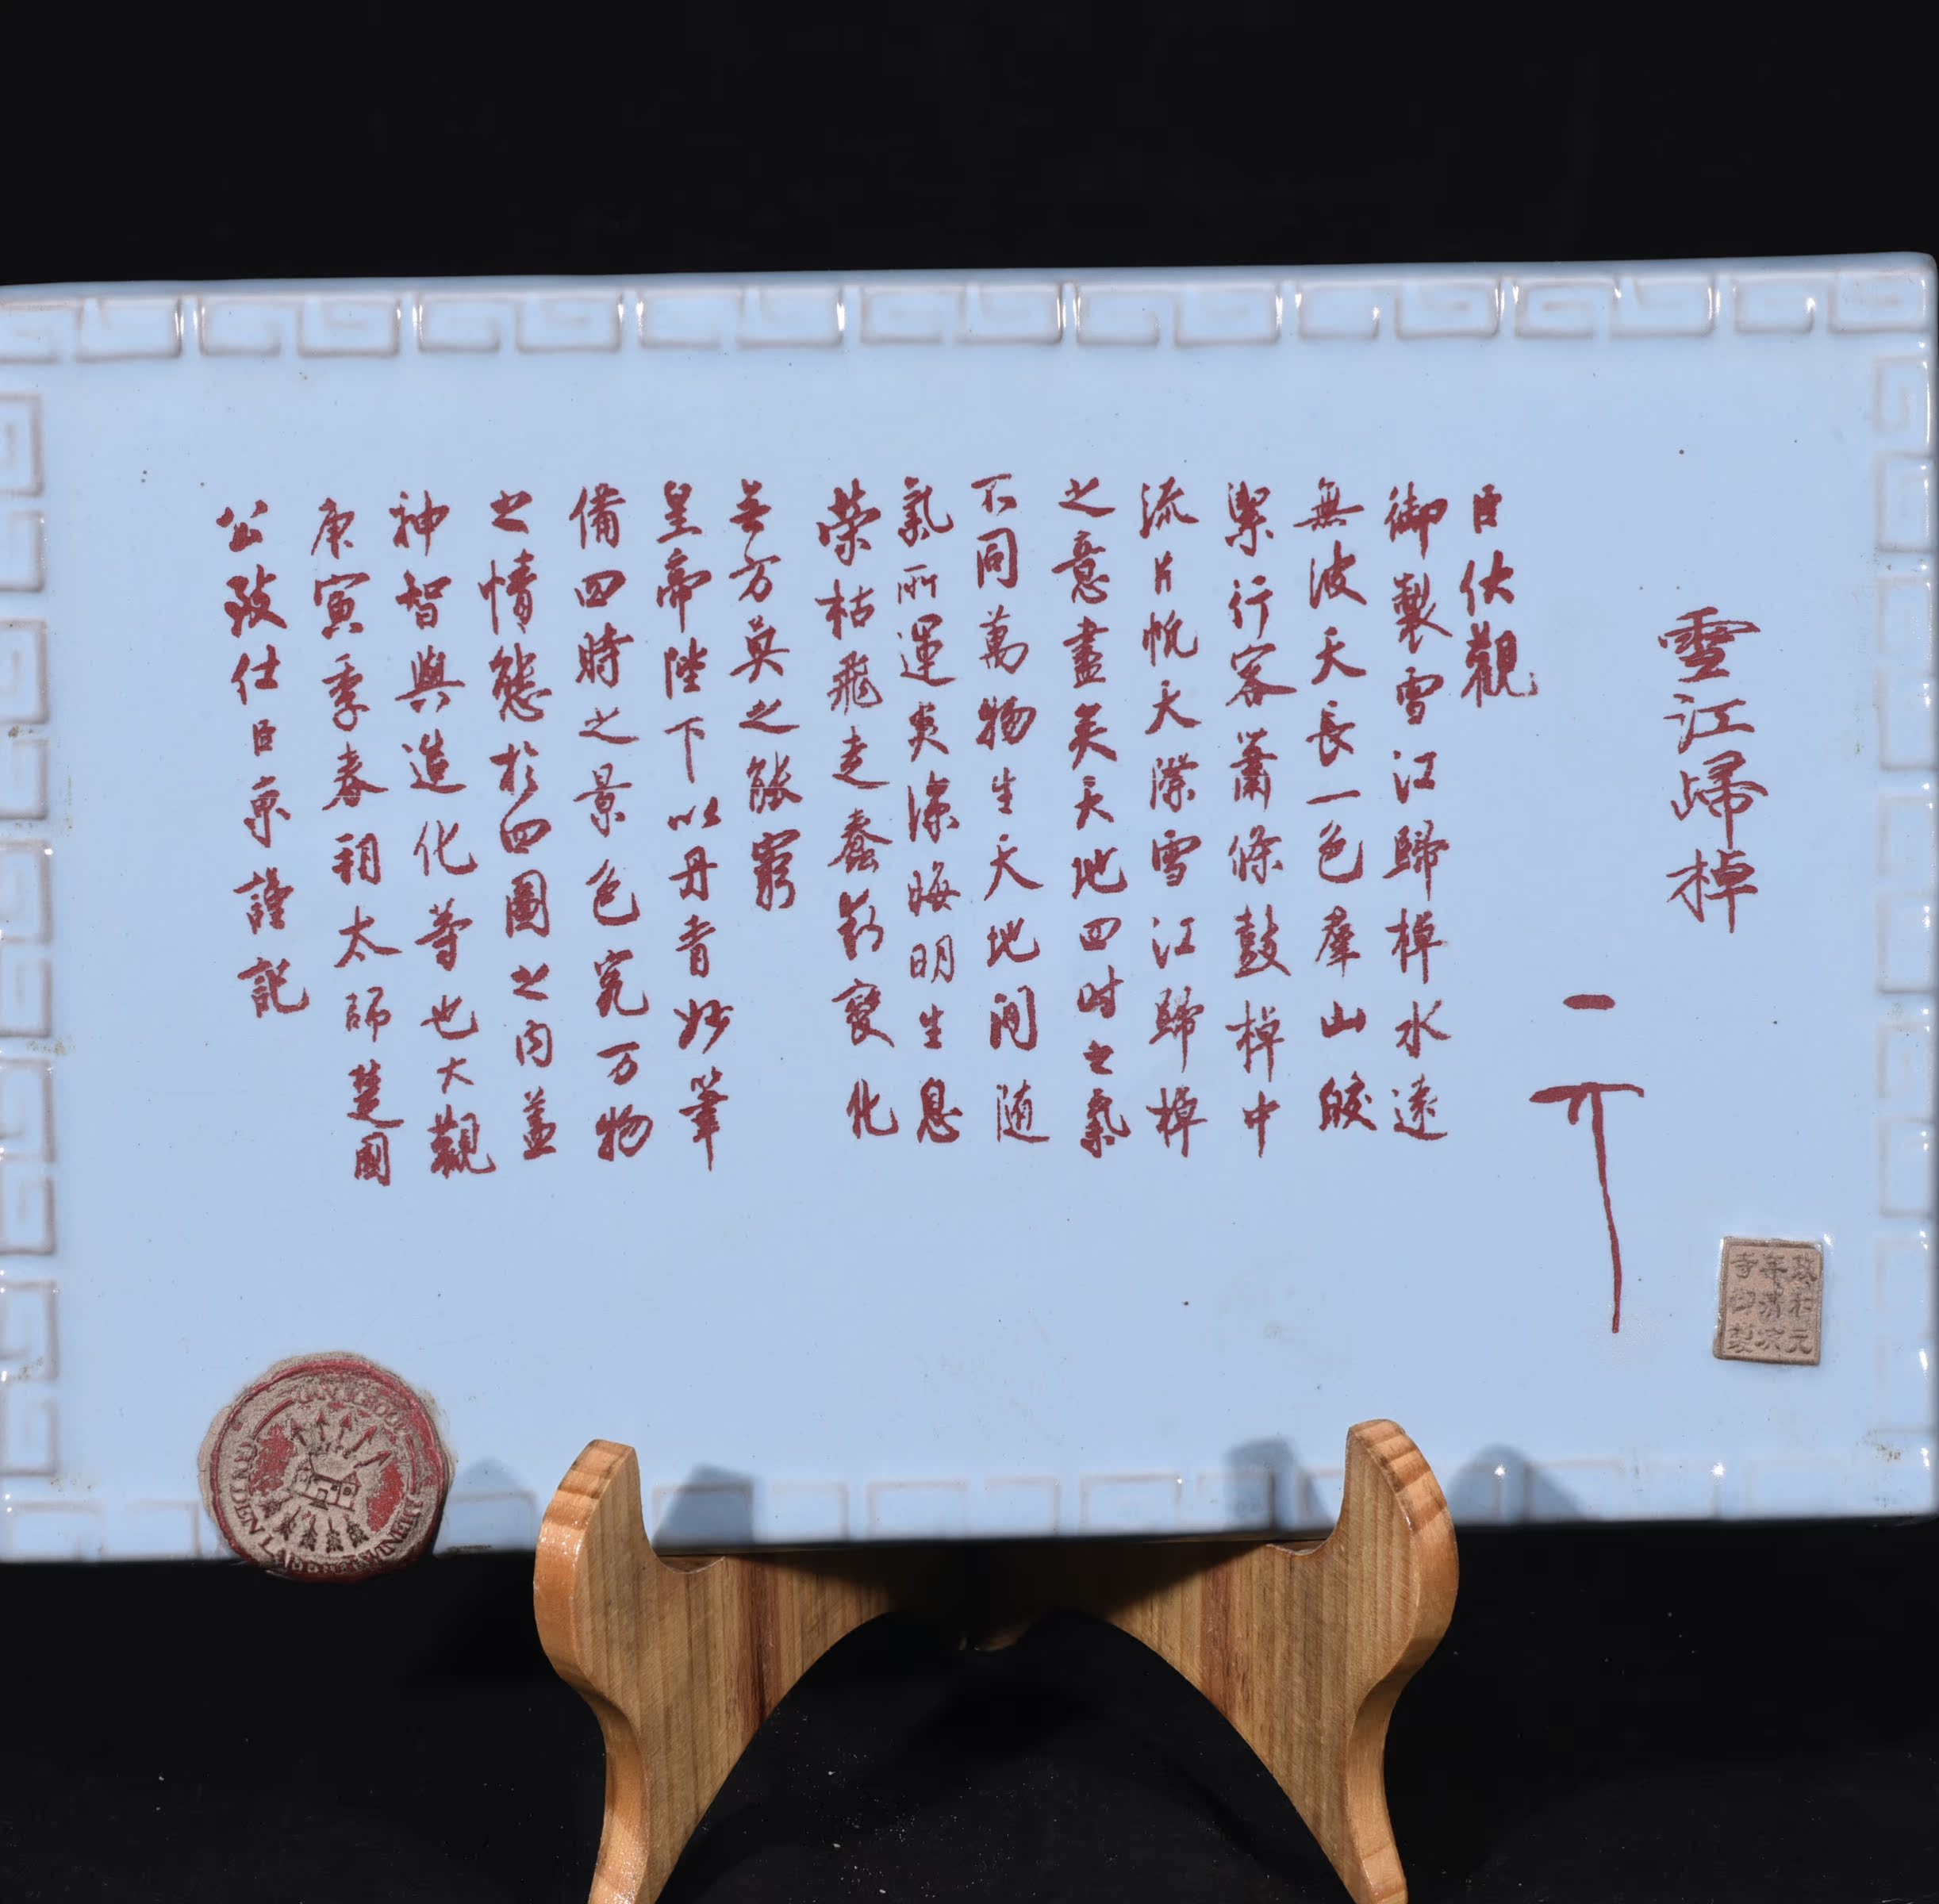 雪江歸棹
臣伏觀
御製雪江歸棹水遠
無波天長一色羣山皎
潔行客蕭條鼓棹中
流片帆天際雪江歸棹
之意盡矣天地四时之氣
不同萬物生天地间随
氣所運炎涼晦明生息
榮枯飛走蠢動變化
無方莫之能窮
皇帝陛下以丹青妙筆
備四時之景色究万物
之情態於四圖之内蓋
神智與造化等也大觀
庚寅季春朔太師楚國
公致仕臣京謹記
政和元
年清凉
寺
製